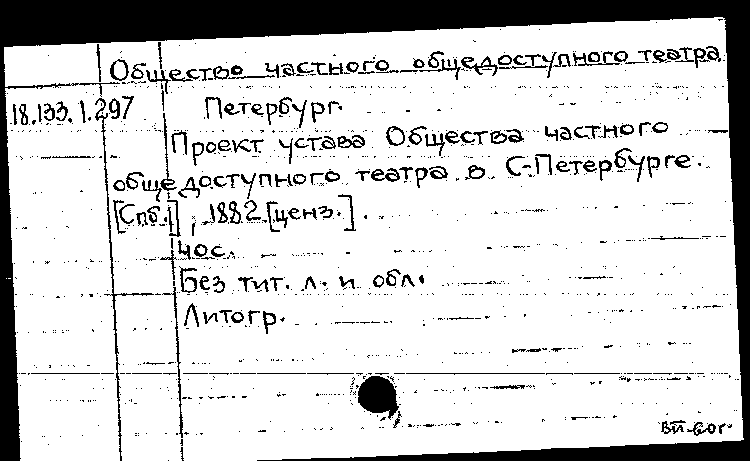 Общество частного общедоступного театра
18.133.1.297 Петербург.
Проект устава Общества частного
общедоступного театра в С-Петербурге.
[Спб.], 1882 [ценз.].
40с.
Без тит. л. и обл.
Литогр.